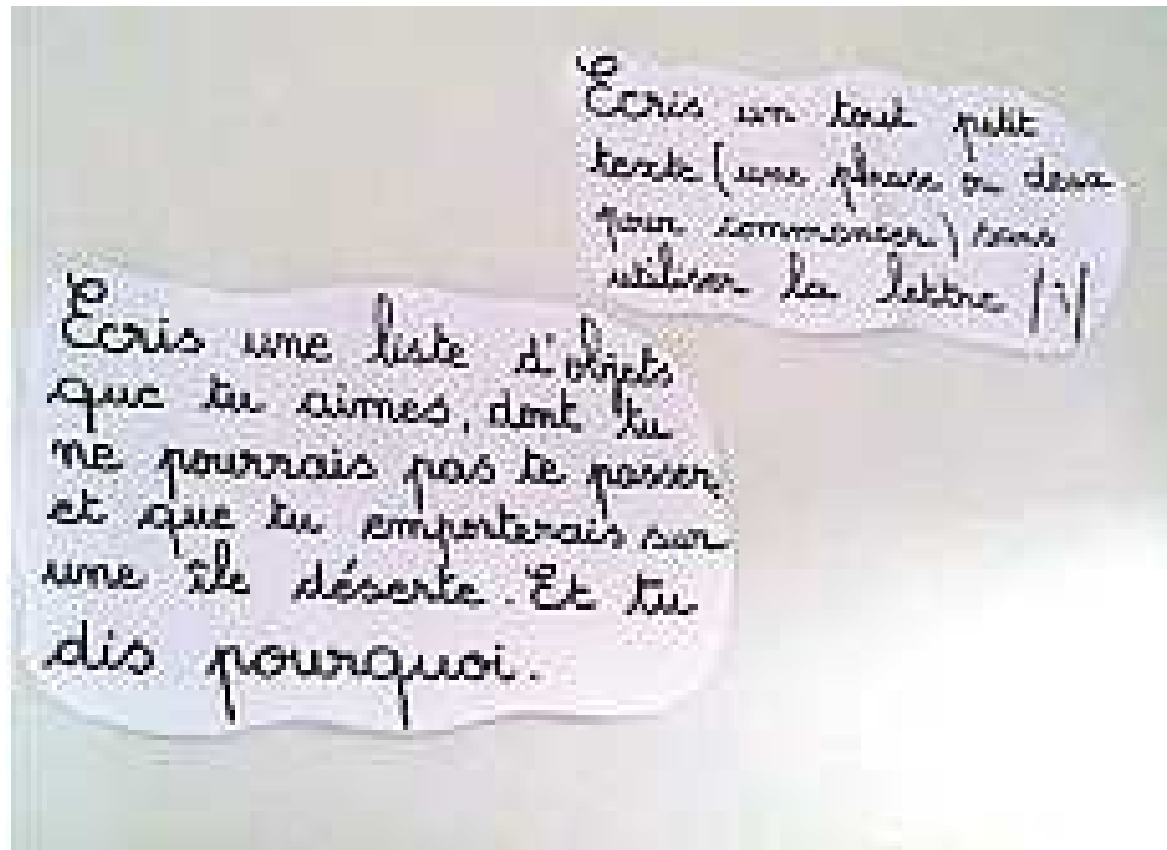 Ecris un tout petit
texte (une phrase ou deux
pour commencer) sans
utiliser la lettre /i/
Ecris une liste d'objets
que tu aimes, dont tu
ne pourrais pas te passer,
et que tu emporterais sur
une île déserte. Et tu
dis pourquoi.